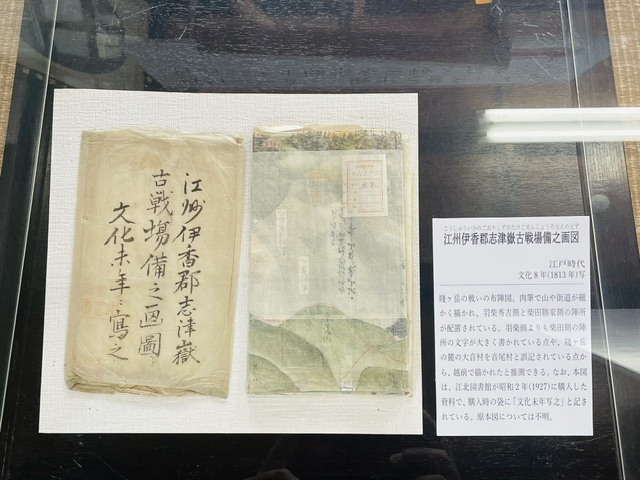 江州伊香郡志津嶽
古戦場備之画圖
文化未年ニ寫之
こうしゅういかのごおりしずがたけこせんじょうそなえのえず
江州伊香郡志津嶽古戦場備之画図
江戸時代
文化8年(1813年)写
賤ヶ岳の戦いの布陣図。肉筆で山や街道が細
かく描かれ、羽柴秀吉側と柴田勝家側の陣所
が配置されている。羽柴側よりも柴田側の陣
所の文字が大きく書かれている点や、賤ヶ岳
の麓の大音村を音尾村と誤記されている点か
ら、越前で描かれたと推測できる。なお、本図
は、江北図書館が昭和2年(1927)に購入した
資料で、購入時の袋に「文化未年写之」と記さ
れている。原本図については不明。